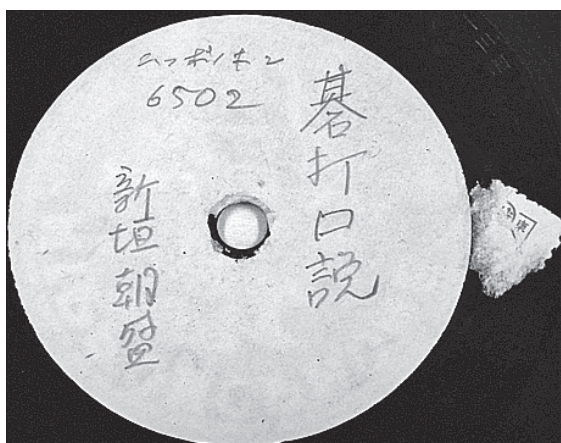 ニッポノホン
6502
碁打口説
新垣朝盛